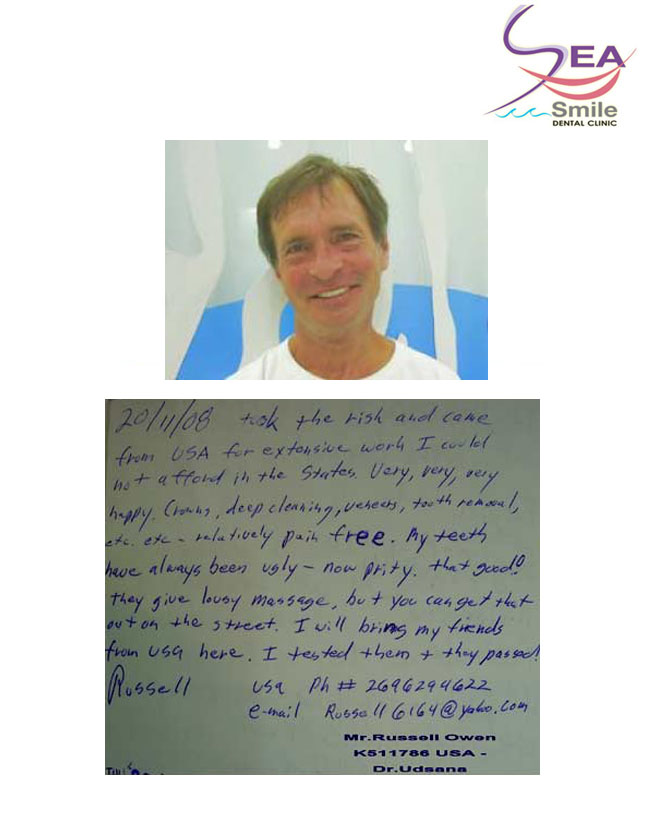 SEA
Smile
DENTAL CLINIC
20/11/08 took the risk and came
from USA for extensive work I could
not afford in the States. Very, very, very
happy. Crowns, deep cleaning, veneers, tooth removal,
etc. etc - relatively pain free. My teeth
have always been ugly - now prity. that good!
they give lousy massage, but you can get that
out on the street. I will bring my friends
from USA here. I tested them + they passed!
Russell USA Ph # 2696294622
e-mail Russell6164@yahoo.com
Mr.Russell Owen
K511786 USA -
Dr.Udsana